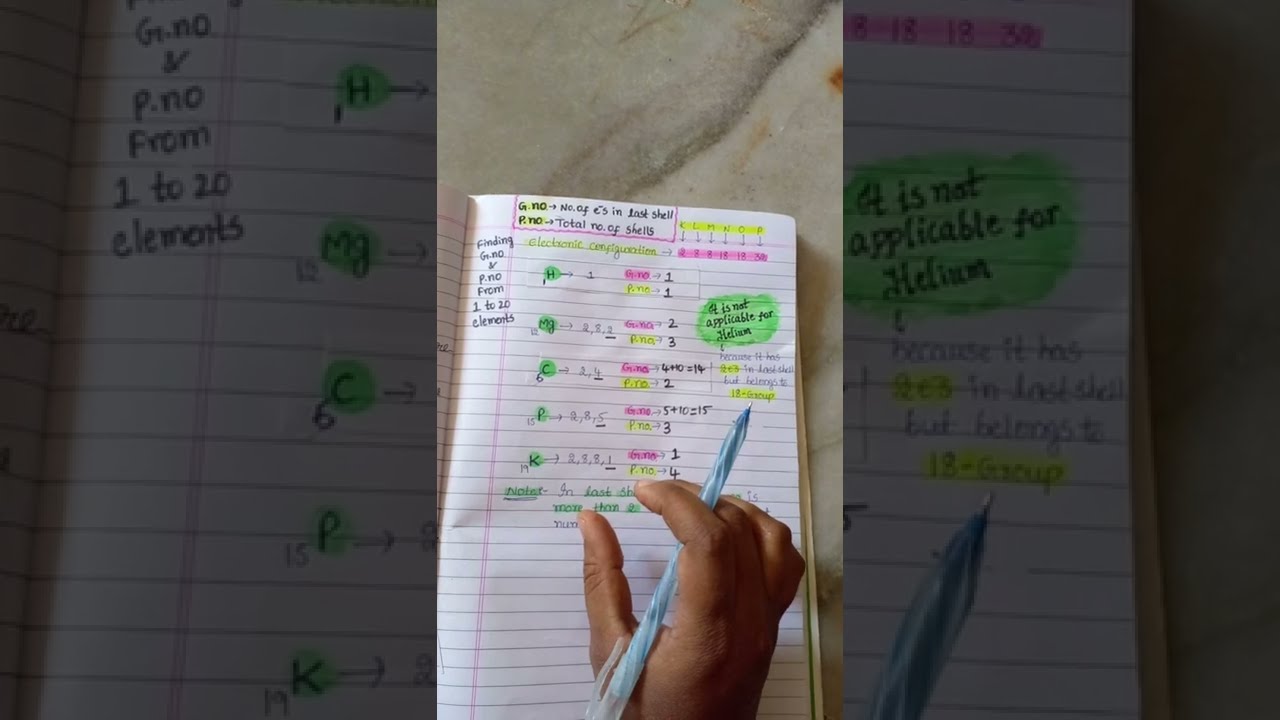 G.no → No. of e⁻s in last shell
P.no → Total no. of shells
K L M N O P
↓ ↓ ↓ ↓ ↓ ↓
Electronic configuration → 2 8 8 18 18 32
Finding
G.no
&
P.no
From
1 to 20
elements
₁H → 1 G.no → 1
P.no. → 1
₁₂Mg → 2,8,2 G.no. → 2
P.no. → 3
₆C → 2,4 G.no → 4+10=14
P.no. → 2
₁₅P → 2,8,5 G.no. → 5+10=15
P.no. → 3
₁₉K → 2,8,8,1 G.no → 1
P.no. → 4
It is not
applicable for
Helium
because it has
2e⁻s in last shell
but belongs to
18-Group
Note:- In last sh is
more than 2
num